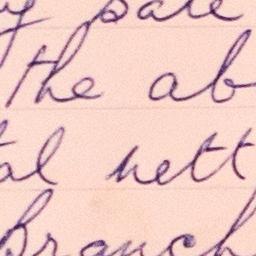 sale
the ab
al nett
Branch